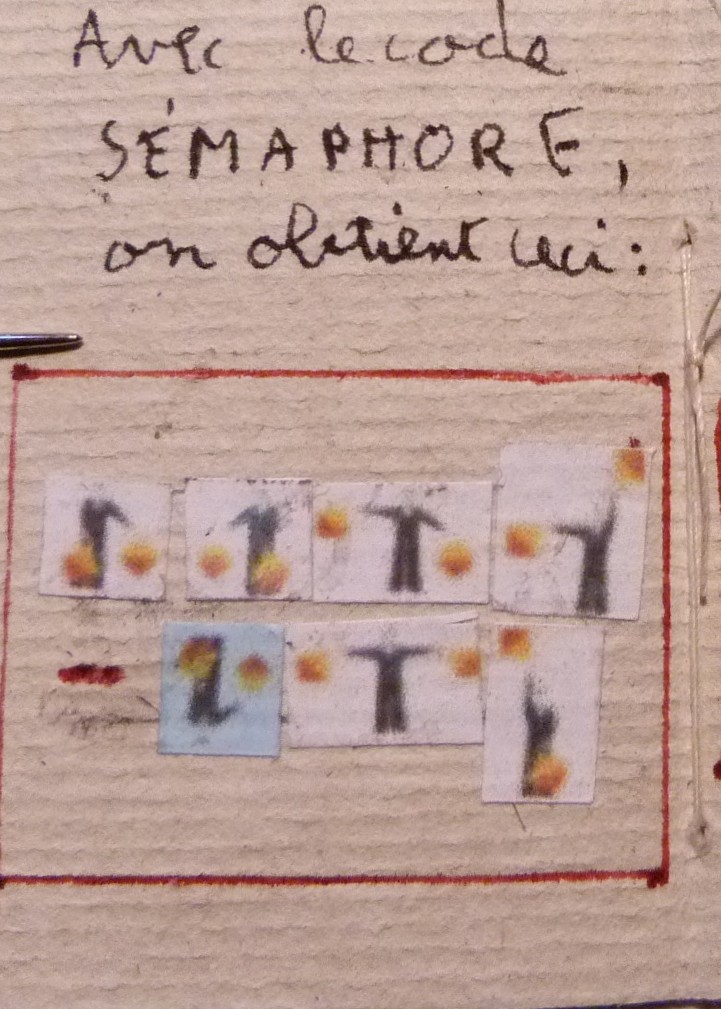 Avec le code
SÉMAPHORE,
on obtient ceci: